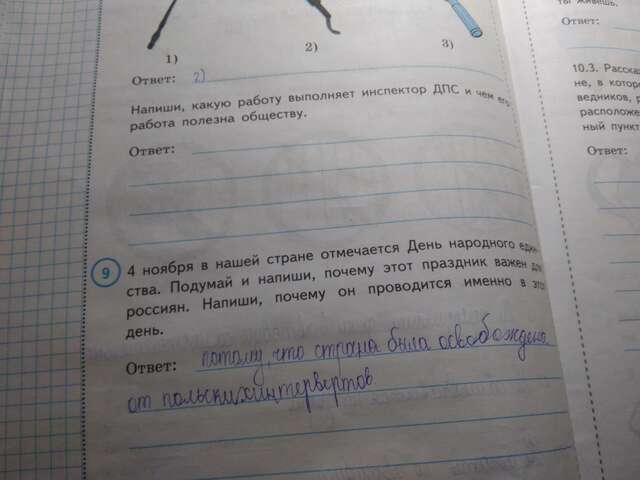 1)
2)
3)
Ответ: 2)
Напиши, какую работу выполняет инспектор ДПС и чем его
работа полезна обществу.
Ответ:
9
4 ноября в нашей стране отмечается День народного един-
ства. Подумай и напиши, почему этот праздник важен для
россиян. Напиши, почему он проводится именно в этот
день.
Ответ: потому, что страна была освобождена
от польских интервертов
ты живёшь.
Ответ:
10.3. Расска
не, в которо
ведников, р
расположе
ный пункт
Ответ: